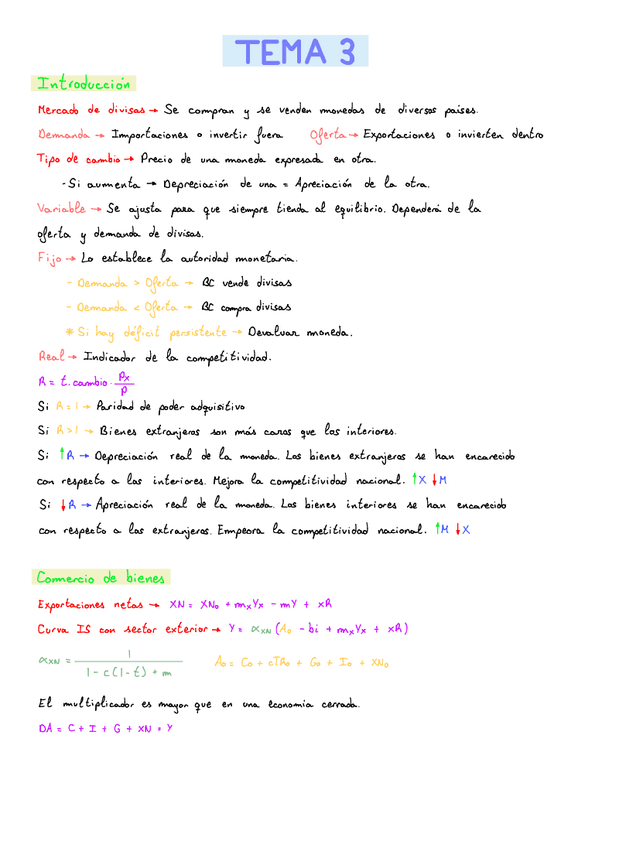 TEMA 3
Introducción
Mercado de divisas → Se compran y se venden monedas de diversos países.
Demanda → Importaciones o invertir fuera Oferta → Exportaciones o invierten dentro
Tipo de cambio → Precio de una moneda expresada en otra.
- Si aumenta → Depreciación de una = Apreciación de la otra.
Variable → Se ajusta para que siempre tienda al equilibrio. Dependerá de la
oferta y demanda de divisas.
Fijo → Lo establece la autoridad monetaria.
- Demanda > Oferta → BC vende divisas
- Demanda < Oferta → BC compra divisas
* Si hay déficit persistente → Devaluar moneda.
Real → Indicador de la competitividad.
R = t. cambio · Px/P
Si R = 1 → Paridad de poder adquisitivo
Si R > 1 → Bienes extranjeros son más caros que los interiores.
Si ↑R → Depreciación real de la moneda. Los bienes extranjeros se han encarecido
con respecto a los interiores. Mejora la competitividad nacional. ↑X ↓M
Si ↓R → Apreciación real de la moneda. Los bienes interiores se han encarecido
con respecto a los extranjeros. Empeora la competitividad nacional. ↑M ↓X
Comercio de bienes
Exportaciones netas → XN = XN₀ + mxYx - mY + xR
Curva IS con sector exterior → Y = αXN (A₀ - bi + mxYx + xR)
αXN = 1 / (1 - c(1-t) + m) A₀ = C₀ + cTR₀ + G₀ + I₀ + XN₀
El multiplicador es mayor que en una economía cerrada.
DA = C + I + G + XN = Y